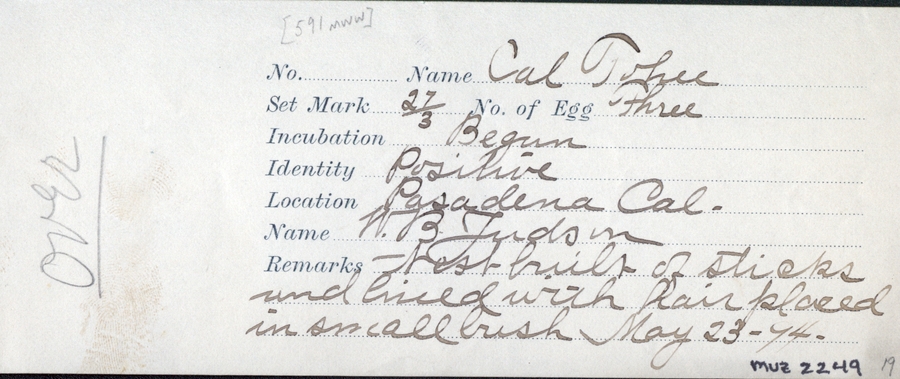 [591 MWW]
No. Name Cal Tohee
Set Mark 27/3 No. of Egg Three
Incubation Begun
Identity Positive
Location Pasadena Cal.
Name W. B. Judson
Remarks - Nest built of sticks
and lined with hair placed
in small bush May 23-94.
OVER
MUZ 2249
19